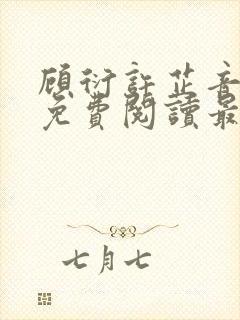 顾衍許芷音
免費閱讀最
七月七